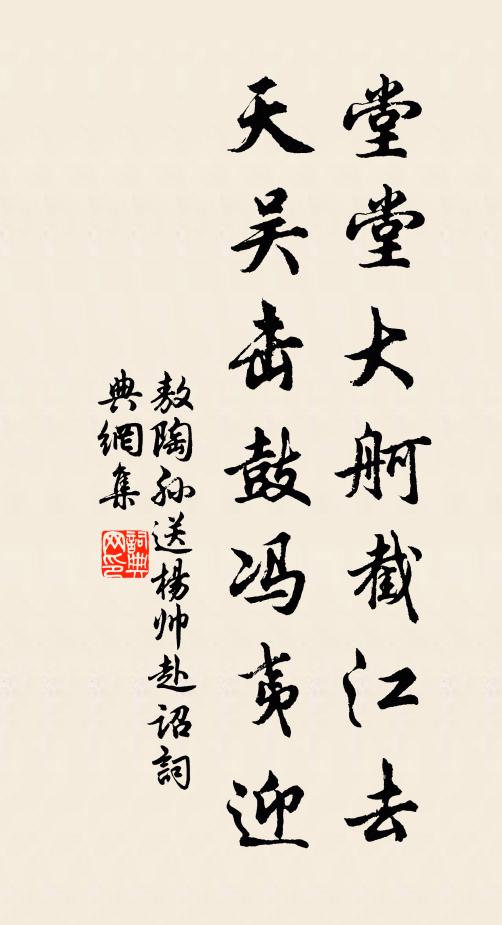 堂堂大舸截江去
天吴击鼓冯夷迎
敖陶孙送杨帅赴诏詞
典網集
詞典网印